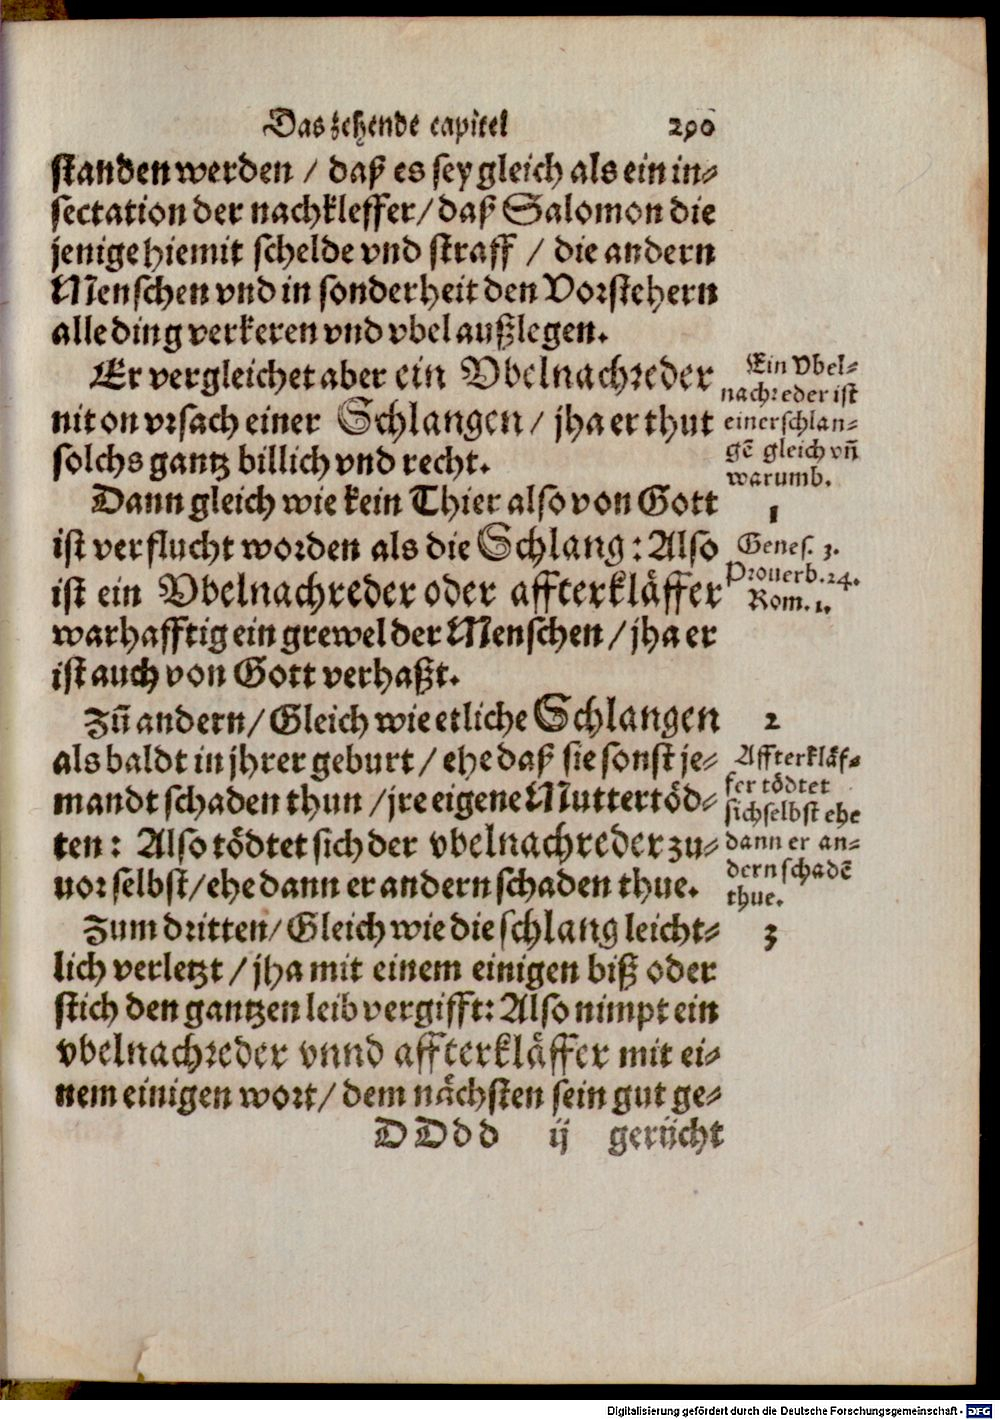 Das zehende capitel 290
standen werden / daß es sey gleich als ein in⸗
sectation der nachkleffer/ daß Salomon die
jenige hiemit schelde vnd straff / die andern
Menschen vnd in sonderheit den Vorstehern
alle ding verkeren vnd vbel außlegen.
Er vergleichet aber ein Vbelnachreder
nit on vrsach einer Schlangen / jha er thut
solchs gantz billich vnd recht.
Ein Vbel⸗
nachreder ist
einer schlan⸗
gē gleich vñ
warumb.
Dann gleich wie kein Thier also von Gott
ist verflucht worden als die Schlang: Also
ist ein Vbelnachreder oder affterkläffer
warhafftig ein grewel der Menschen / jha er
ist auch von Gott verhaßt.
1
Genes. 3.
Prouerb. 24.
Rom. 1.
Zũ andern/ Gleich wie etliche Schlangen
als baldt in jhrer geburt / ehe daß sie sonst je⸗
mandt schaden thun / jre eigene Mutter töd⸗
ten: Also tödtet sich der vbelnachreder zu⸗
uor selbst/ ehe dann er andern schaden thue.
2
Affterkläf⸗
fer tödtet
sich selbst ehe
dann er an⸗
dern schadē
thue.
Zum dritten/ Gleich wie die schlang leicht⸗
lich verletzt / jha mit einem einigen biß oder
stich den gantzen leib vergifft: Also nimpt ein
vbelnachreder vnnd affterkläffer mit ei⸗
nem einigen wort/ dem nächsten sein gut ge⸗
3
DDdd ij gerücht
Digitalisierung gefördert durch die Deutsche Forschungsgemeinschaft - DFG